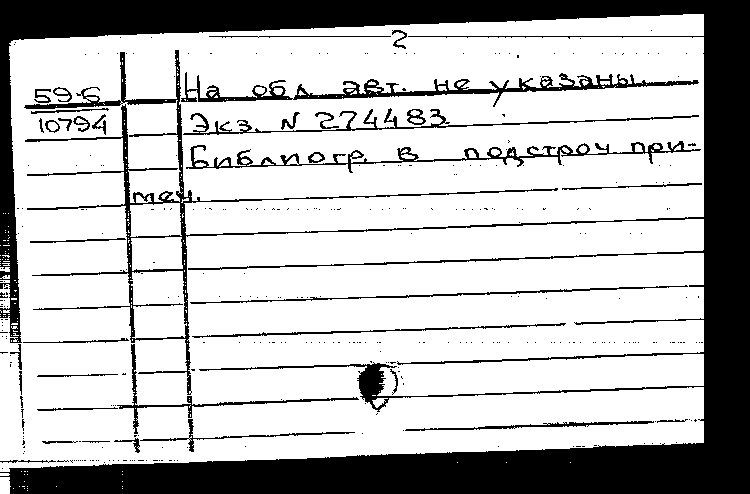 2
59-6 На обл. авт. не указаны.
10794 Экз. N 274483
Библиогр. в подстроч. при-
меч.